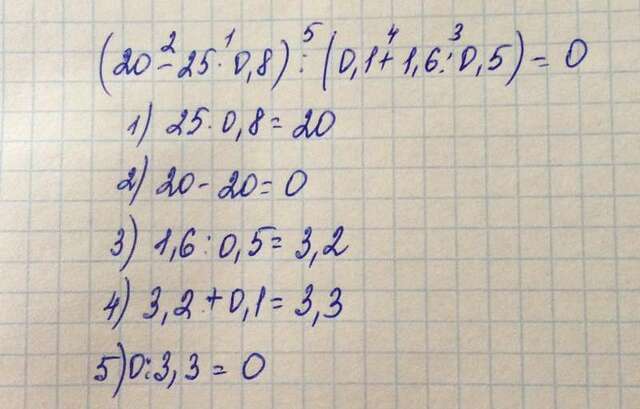 (20 - 25 · 0,8) : (0,1 + 1,6 : 0,5) = 0
1) 25 · 0,8 = 20
2) 20 - 20 = 0
3) 1,6 : 0,5 = 3,2
4) 3,2 + 0,1 = 3,3
5) 0 : 3,3 = 0